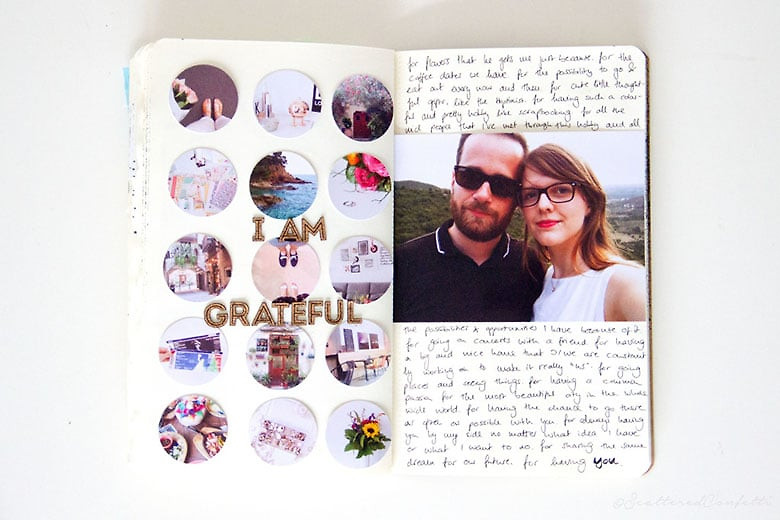 I AM
GRATEFUL
for flowers that he gets me just because. for the
coffee dates we have for the possibility to go &
eat out every now and then. for cute little thought-
ful apps. like the for having such a color-
ful and pretty hobby like scrapbooking. for all the
and people that i've met through this hobby and all
the possibilities & opportunities I have because of it
for going on concerts with a friend for having
a big and nice home that we are constant
ly working on to make it really "us". for going
places and seeing things. for having a common
passion for the most beautiful city in the whole
wide world for having the chance to go there
as often as possible with you for always having
you by my side no matter what idea i have
or what I want to do. for sharing the same
dream for our future. for having you.
©ScatteredConfetti